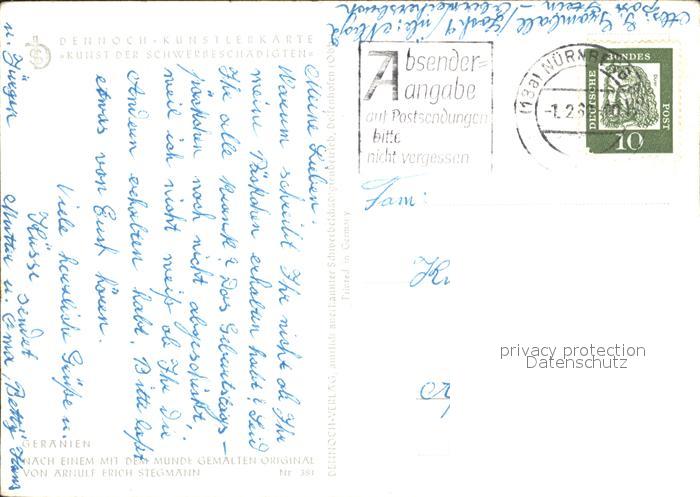 DENNOCH-KÜNSTLERKARTE
»KUNST DER SCHWERBESCHÄDIGTEN«
Meine Lieben.
Warum schreibt Ihr nicht ob Ihr
meine Päckchen erhalten habt? Seid
Ihr alle krank? Das Geburtstags-
päckchen noch nicht abgeschickt,
weil ich nicht weiß ob Ihr die
Andern erhalten habt. Bitte lasst
etwas von Euch hören.
Viele herzliche Grüße u.
Küsse sendet
Mutter u. Oma, Betty, Hans
u. Jürgen
GERANIEN
NACH EINEM MIT DEM MUNDE GEMALTEN ORIGINAL
VON ARNULF ERICH STEGMANN Nr. 381
DENNOCH-VERLAG, amtlich anerkannter Schwerbeschädigtenbetrieb, Deisenhofen (Obb)
Printed in Germany
Abs.
Post Stein
Absender=
angabe
auf Postsendungen
bitte
nicht vergessen
(13a) NÜRNBERG
-1.2.6
DEUTSCHE BUNDESPOST
10
Fam:
Kr
privacy protection
Datenschutz